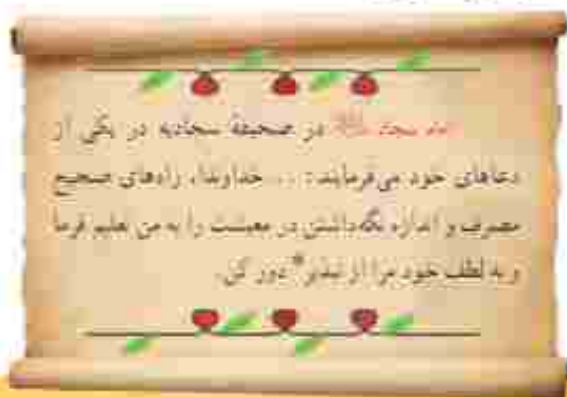 امام سجاد در صحیفهٔ سجادیه در یکی از
دعاهای خود می‌فرمایند: ... خداوندا، راه‌های صحیح
مصرف و اندازه نگه‌داشتن در معیشت را به من تعلیم فرما
و به لطف خود مرا از تبذیر* دور کن.